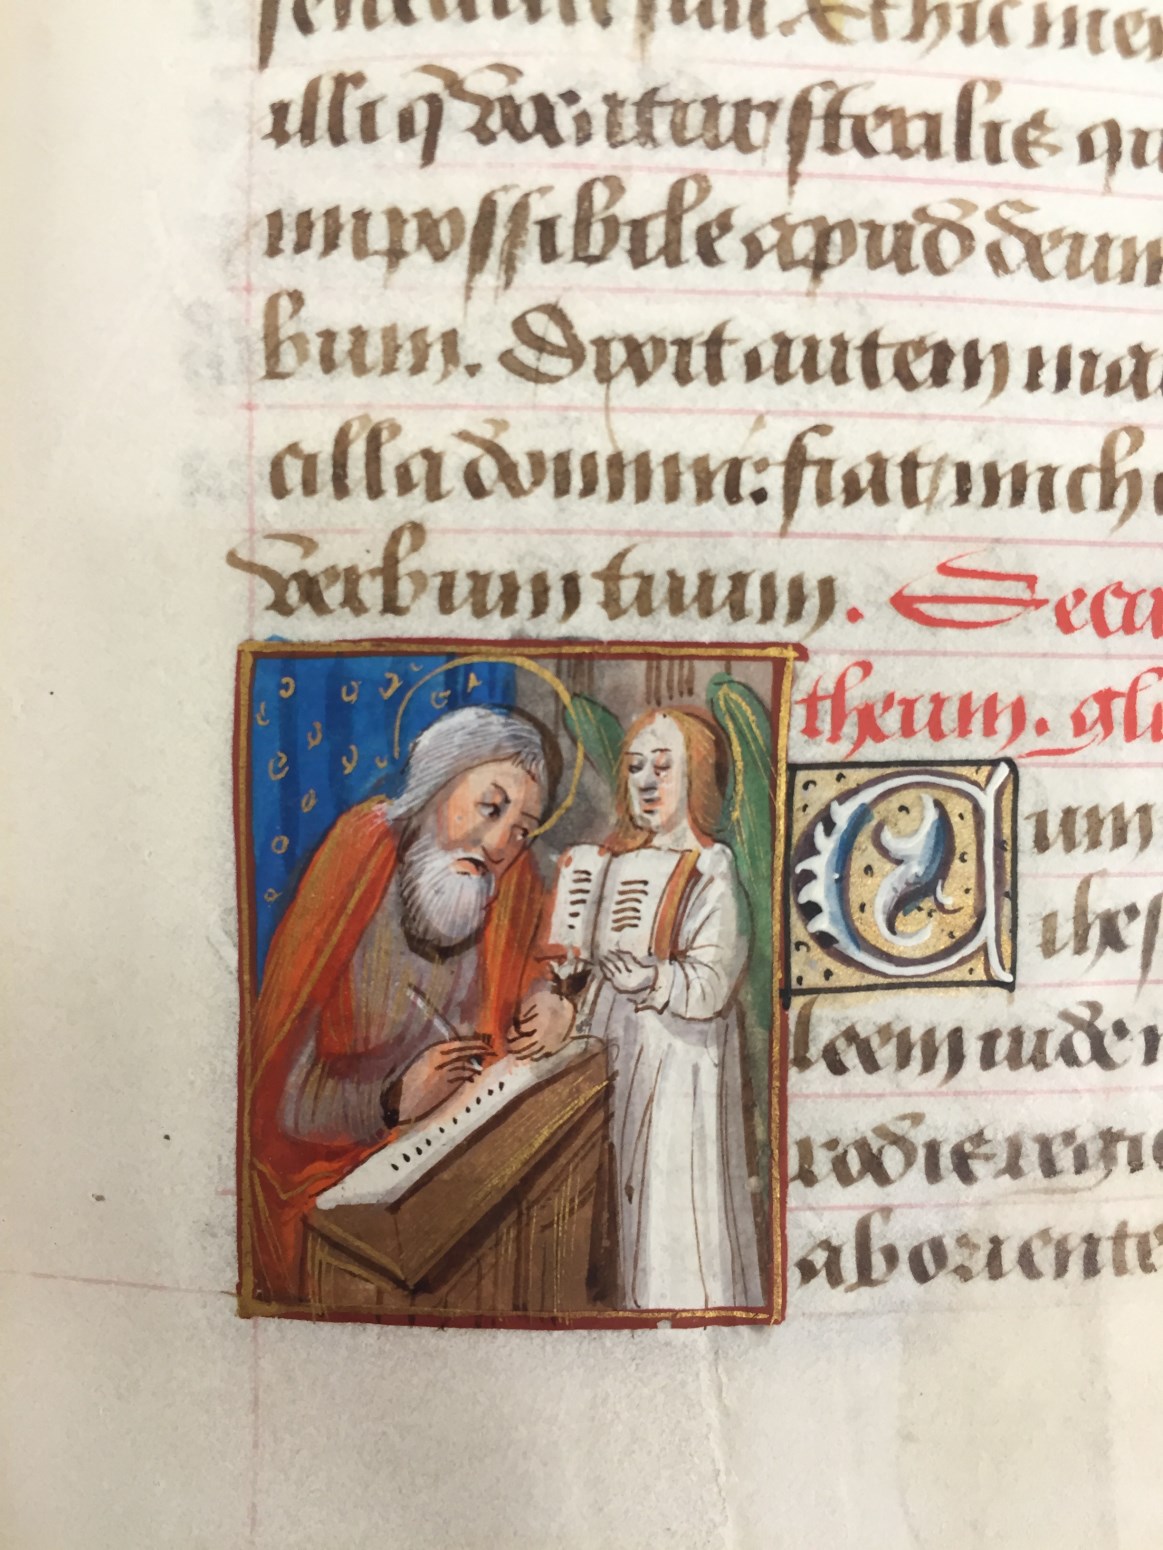 senectute sua. Et hic men
illi q̄ vocitatur sterilis qu
impossibile apud deum
bum. Dixit autem ma
cilla domini: fiat michi
verbum tuum. Secu
theum. gl
Cum
ihes
leem iude
rodis regi
ab oriente